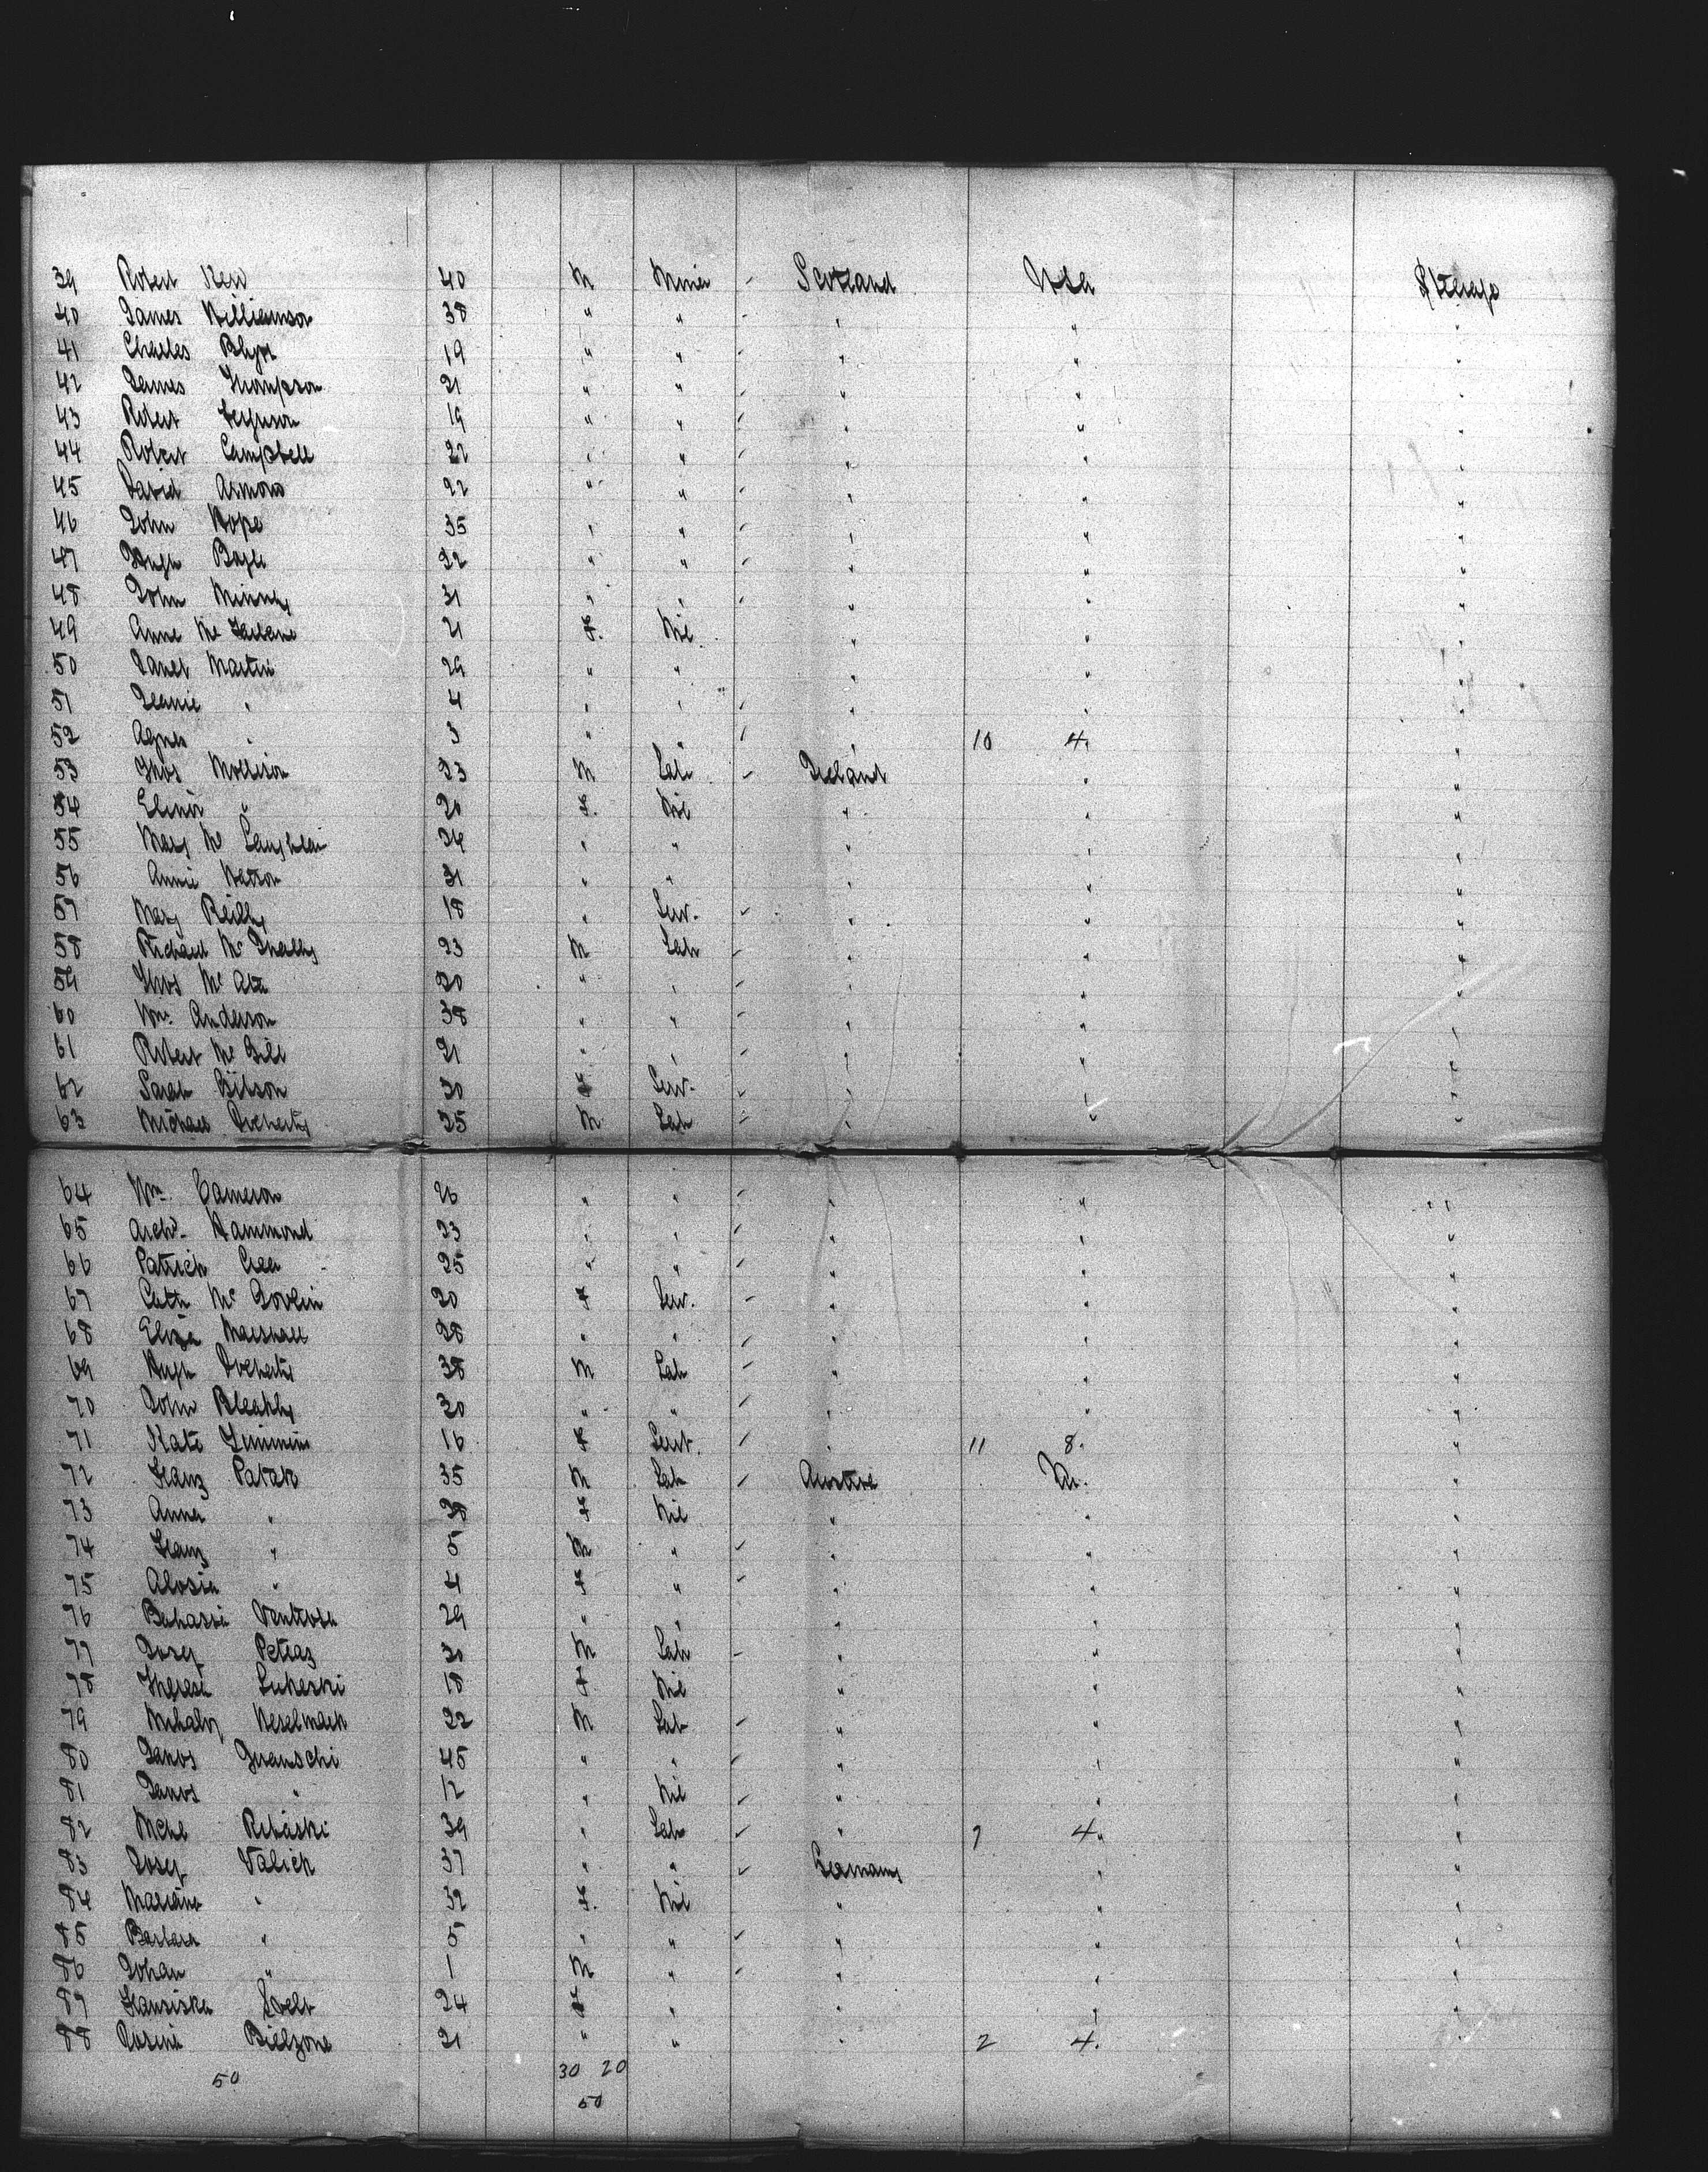 39 Robert Kerr 40 M Miner Scotland USA Steerage
40 James Williamson 38 " " " " "
41 Charles 19 " " " " "
42 James Thompson 21 " " " " "
43 Robert Ferguson 19 " " " " "
44 Robert Campbell 22 " " " " "
45 David 22 " " " " "
46 John Hope 35 " " " " "
47 Hugh Boyle 22 " " " " "
48 John 31 " " " " "
49 Anne Mc Farlane 21 F. Nil " " "
50 Janet Martin 29 " " " " "
51 Jeanie " 4 " " " " "
52 Agnes " 3 " " " 10 4. "
53 Thos Mollison 23 M Lab Ireland " "
54 Elinor " 20 F. Nil " " "
55 Mary Mc Laughlan 24 " " " " "
56 Annie Watson 21 " " " " "
57 Mary Reilly 18 " Serv. " " "
58 Richard Mc 23 M Lab " " "
59 Thos Mc 20 " " " " "
60 Wm. Anderson 38 " " " " "
61 Robert Mc Gill 21 " " " " "
62 Sarah Gibson 30 F Serv. " " "
63 Michael Docherty 25 M Lab " " "
64 Wm. Cameron 26 " " " " "
65 Archd. Hammond 23 " " " " "
66 Patrick 25 " " " " "
67 Cath Mc 20 F Serv. " " "
68 Eliza Marshall 28 " " " " "
69 Hugh Docherty 38 M Lab " " "
70 John Bleakly 30 " " " " "
71 Kate 16 F Servt. " 11 8. "
72 Franz 35 M Lab Austria "
73 Anna " 28 F Nil " " "
74 Franz " 5 M " " " "
75 Alosia " 4 F " " " "
76 29 " " " " "
77 Josef Petraz 30 M Lab " " "
78 Theresa 18 F. Nil " " "
79 Mihaly 22 M Lab " " "
80 Janos 45 " " " " "
81 Janos " 12 " Nil " " "
82 39 " Lab " 7 4. "
83 Josef Valich 37 " " Germany " "
84 Mariana " 32 F. Nil " " "
85 Barbara " 5 " " " " "
86 Johan " 1 M " " " "
87 Franziska 24 F " " " "
88 21 " " " 2 4. "
50 30 20
50